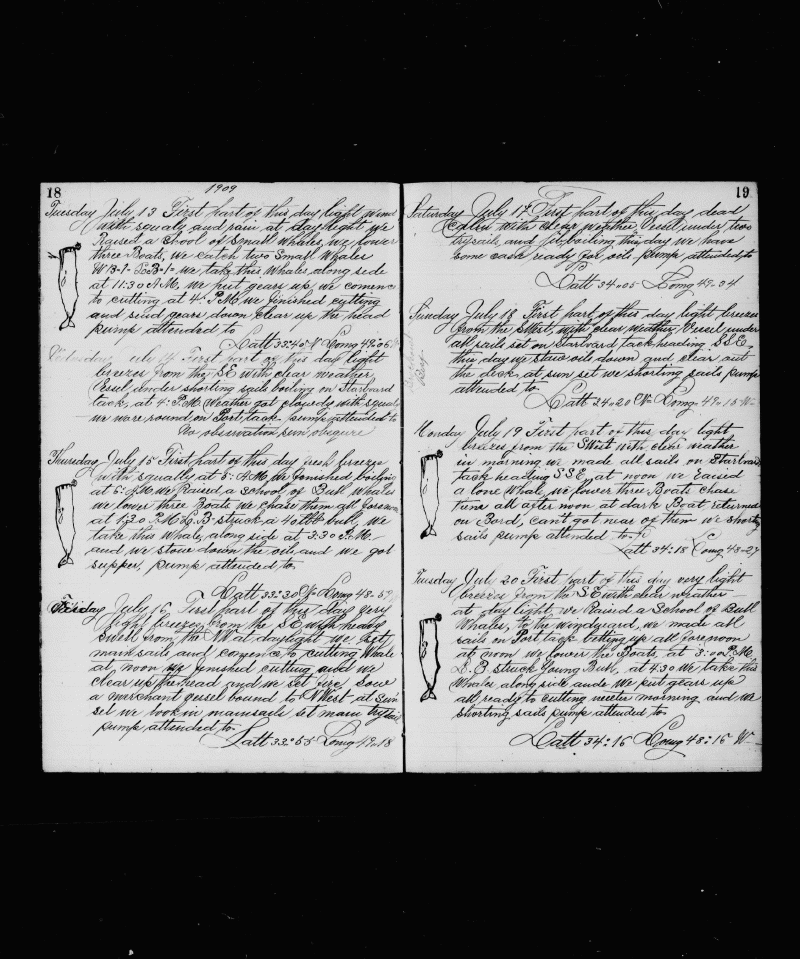 18
1909
Tuesday July 13 First part of this day light wind
with squaly and rain at day light we
Raised a Chool of Small Whales, we lower
three Boats, we catch two Small Whales
W-B-1- L-B-1- we take this Whales along side
at 11:30 A.M. we put gears up we comence
to cutting at 4- P.M. we finished cutting
and send gears down clear up the head
pump attended to
Latt 33:40 N Long 49:06
Wednesday July 14 First part of this day light
breezes from the SE with clear weather,
Vessel under shorting sails boiling on Starboard
tack, at 4- P.M. Weather got cloudy with squaly
we ware round on Port tack pump attended to
No observation sun obsqure
Thursday July 15 First part of this day fresh breezes
with squally at 5- A.M. we finished boiling
at 6- A.M. we Raised a School of Bull Whales
we lower three Boats we chase them all forenoon
at 1:30 P.M. L.B. struck a 40 bbl bull, we
take this Whale, along side at 3:30 P.M.-
and we stow down the oil, and we got
supper, pump attended to
Latt 33:30 N- Long 48-59
Friday July 16, First part of this day very
light breezes from the SE with heavy
swell from the NW at daylight we set
mainsails and comence to cutting Whale
at, noon we finished cutting and we
clear up the head and we set fire, saw
a merchant vessel bound to NWest- at sun
set we took in mainsails set main trysail
pump attended to
Latt 33:55 Long 49:18
19
Saturday July 17 First part of this day dead
Calm with clear weather, Vessel under two
trysails and jib boiling this day we have
some cask ready for oils pump attended to
Latt 34:05 Long 49:04
Sunday July 18 First part of this day light breezes
from the SWest, with clear weather, Vessel under
all sails set on Starboard tack heading SSE-
this day we stow oils down and clear out
the deck, at sun set we shorting sails pump
attended to
Latt 34:20 N- Long 49:15 W-
Monday July 19 First part of this day light
breezes from the SWest with clear weather
in morning we made all sails on Starboard
tack heading SSE, at noon we raised
a lone Whale, we lower three Boats chase
him all after noon at dark Boat returned
on Bord, can't got near of them we shorting
sails pump attended to-
Latt 34:18 Long 48-27
Tuesday July 20 First part of this day very light
breezes from the SE with clear weather-
at day light, we Raised a School of Bull
Whales, to the windward, we made all
sails on Port tack beting up all forenoon
at noon we lower the Boats, at 3:00 P.M.
L.B. struck Young Bull, at 4:30 We take this
Whale along side and We put gears up
all ready to cutting nexte morning and we
shorting sails pump attended to
Latt 34:16 Long 48:16 W-